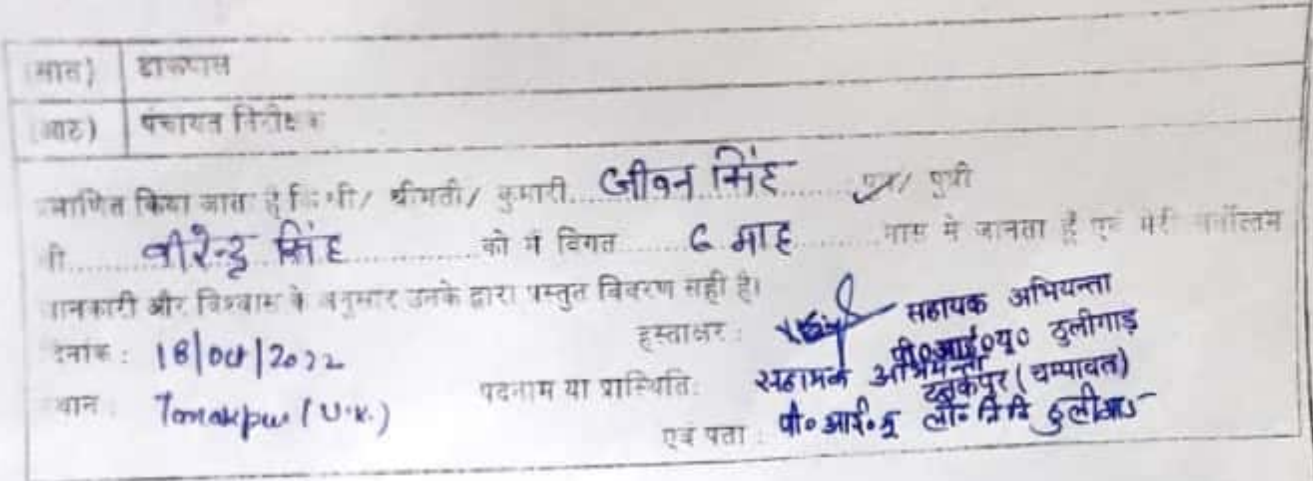 (सात) डाकपाल
(आठ) पंचायत निरीक्षक
प्रमाणित किया जाता है कि श्री/ श्रीमती/ कुमारी....जीवन सिंह........पुत्र/ पुत्री
श्री........वीरेन्द्र सिंह............को मैं विगत.......6 माह..........मास से जानता हूँ एवं मेरी सर्वोत्तम
जानकारी और विश्वास के अनुसार उनके द्वारा प्रस्तुत विवरण सही है।
दिनांक : 18/oct/2022 हस्ताक्षर :
सहायक अभियन्ता
पी०आई०यू० ठुलीगाड़
टनकपुर (चम्पावत)
स्थान : Tanakpur (U.K.) पदनाम या प्रास्थिति: सहायक अभियन्ता
एवं पता : पी० आई० यू लो० नि० वि ठुलीगाड़